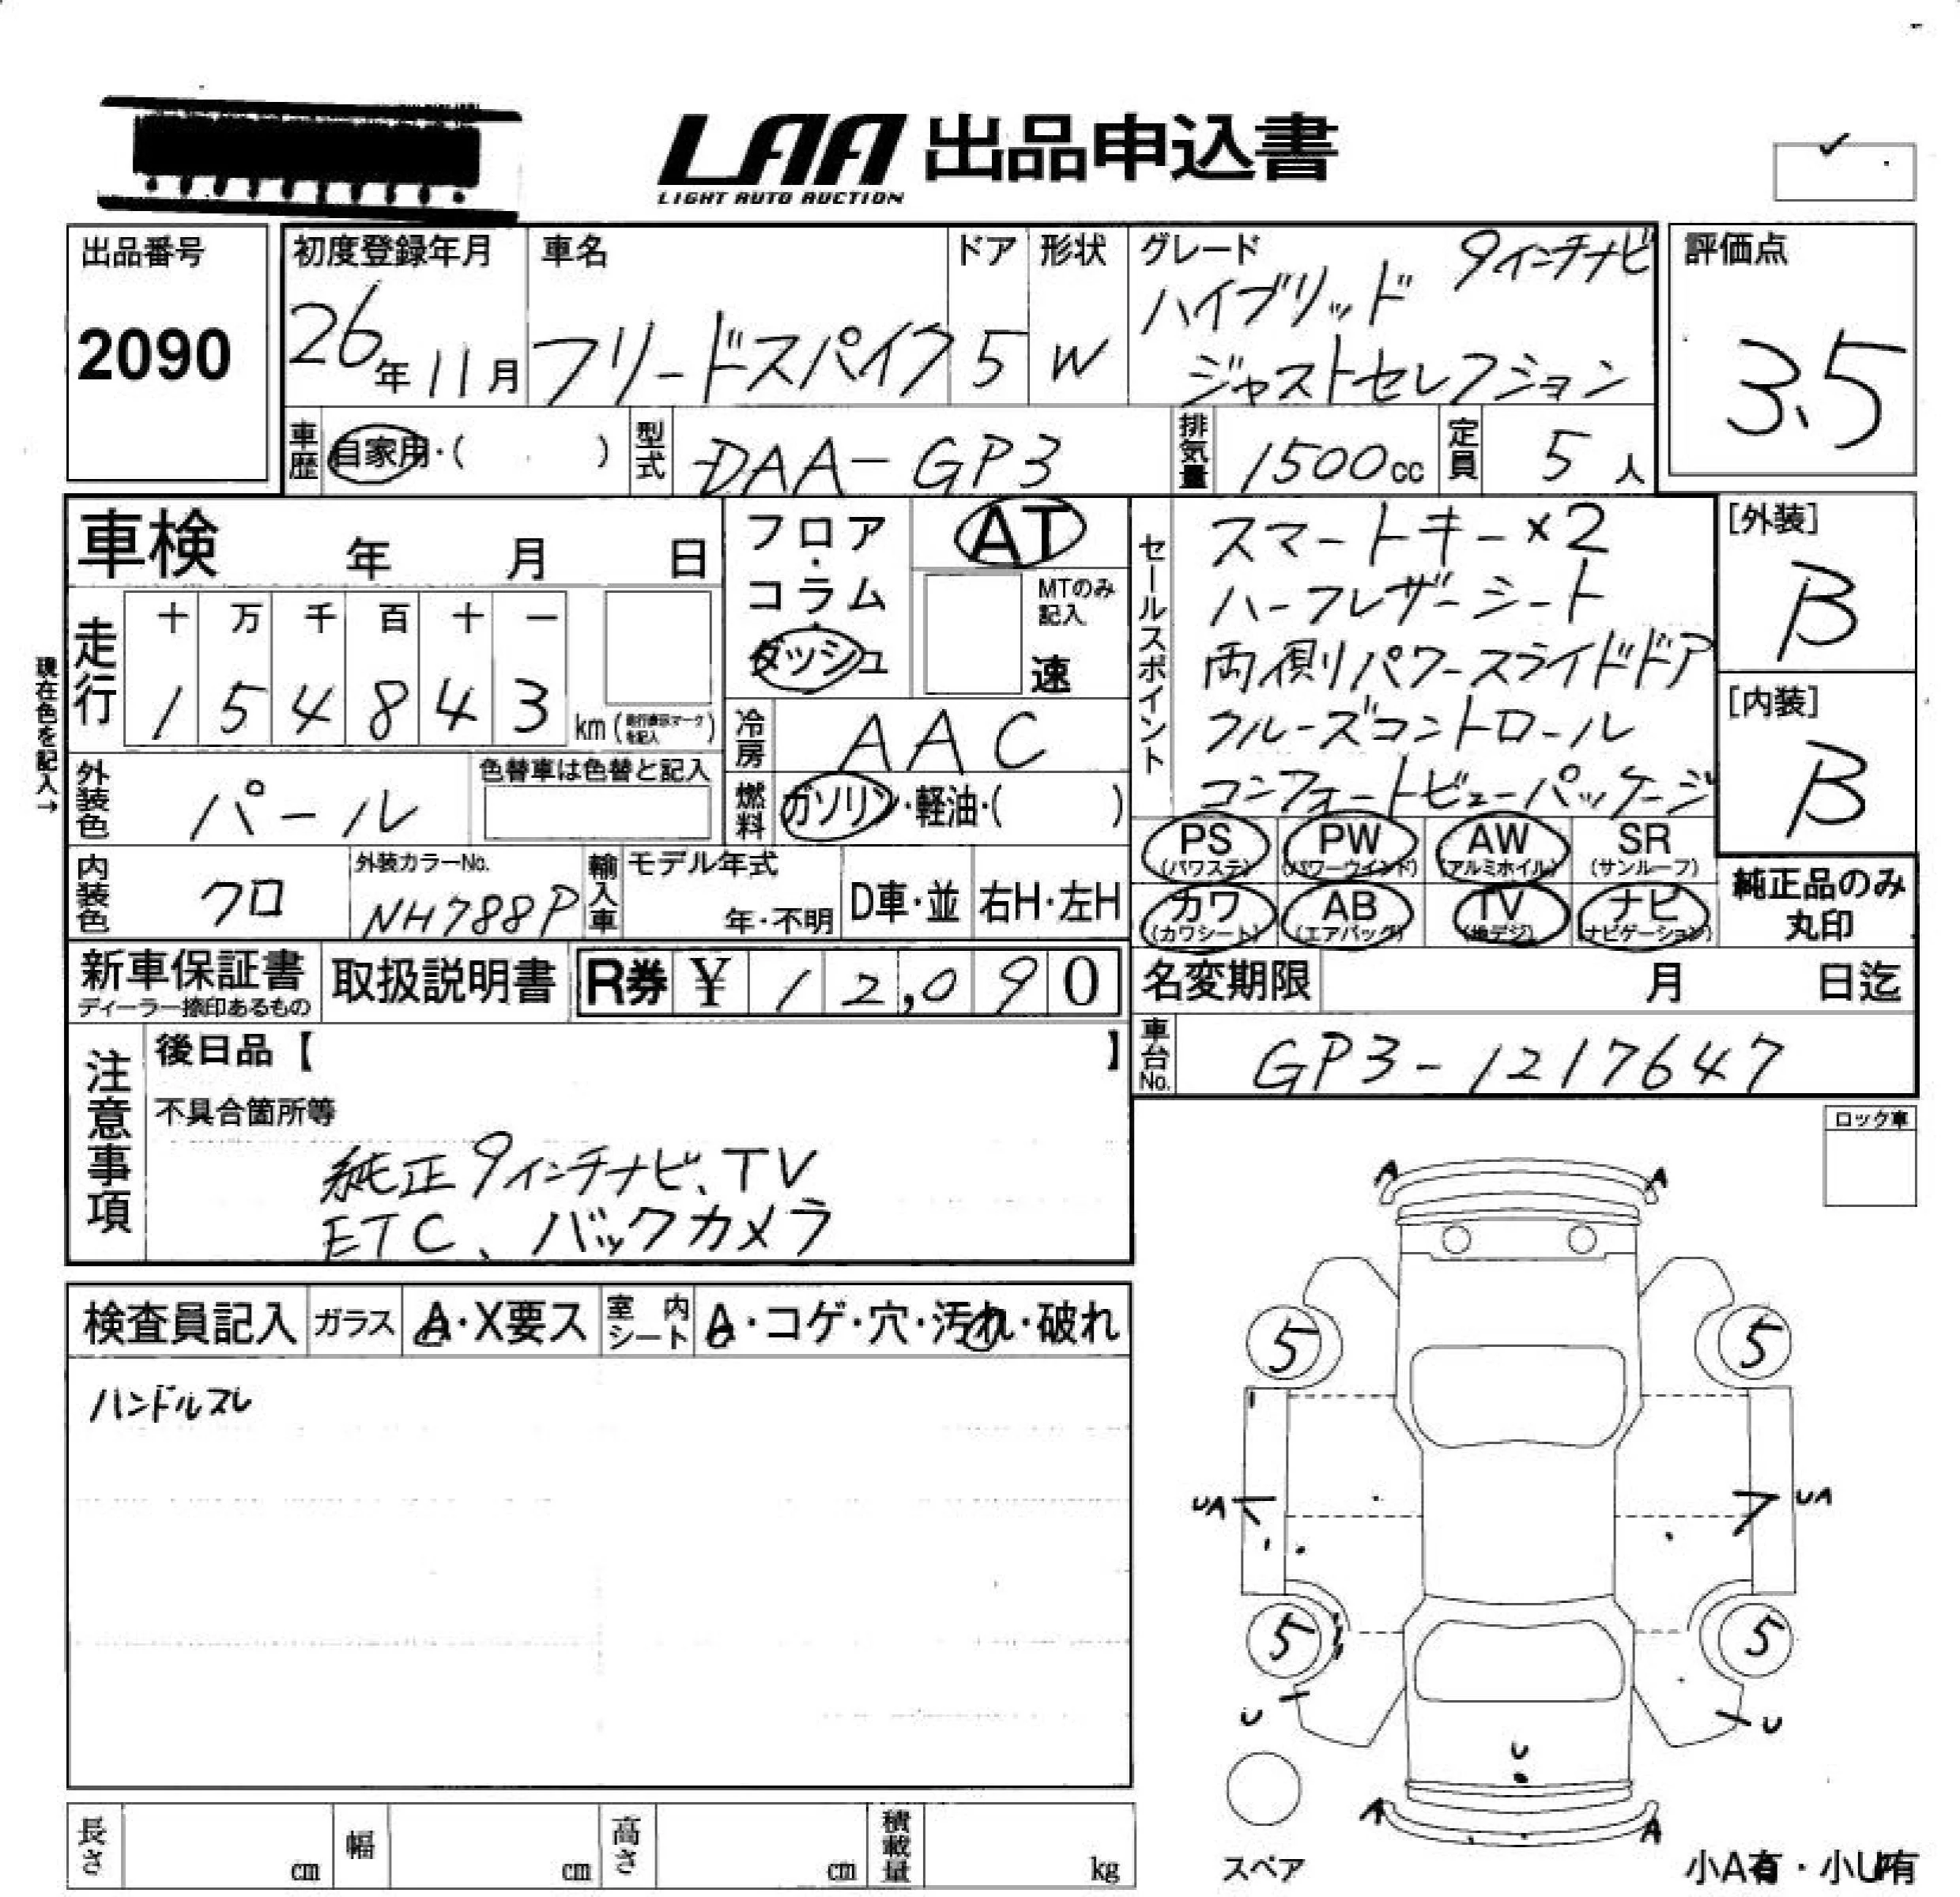 LAA 出品申込書
LIGHT AUTO AUCTION
出品番号
2090
初度登録年月
26年11月
車名
フリードスパイク
ドア
5
形状
W
グレード
9インチナビ
ハイブリッド
ジャストセレクション
評価点
3.5
車歴
自家用・( )
型式
DAA-GP3
排気量
1500cc
定員
5人
車検 年 月 日
フロア・コラム・ダッシュ
AT
MTのみ記入
速
セールスポイント
スマートキー×2
ハーフレザーシート
両側パワースライドドア
クルーズコントロール
コンフォートビューパッケージ
[外装]
B
[内装]
B
現在色を記入→
走行
十 万 千 百 十 一
1 5 4 8 4 3 km
冷房
AAC
外装色
パール
色替車は色替と記入
燃料
ガソリン・軽油・( )
PS PW AW SR
(パワステ) (パワーウインド) (アルミホイル) (サンルーフ)
カワ AB TV ナビ
(カワシート) (エアバッグ) (地デジ) (ナビゲーション)
純正品のみ
丸印
内装色
クロ
外装カラーNo.
NH788P
輸入車
モデル年式
年・不明
D車・並
右H・左H
新車保証書
ディーラー捺印あるもの
取扱説明書
R券 ¥ 12,090
名変期限 月 日迄
車台No.
GP3-1217647
注意事項
後日品【 】
不具合箇所等
純正9インチナビ、TV
ETC、バックカメラ
ロック車
検査員記入
ガラス
A・X要ス
室内シート
A・コゲ・穴・汚れ・破れ
ハンドルスレ
A A
5 5
UA UA
5 5
U U
U
A A
スペア
小A有・小U有
長さ cm
幅 cm
高さ cm
積載量 kg